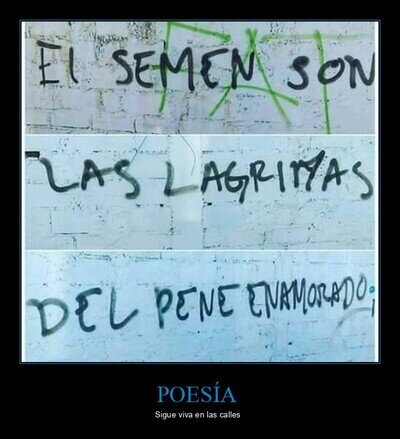 El SEMEN SON
LAS LAGRIMAS
DEL PENE ENAMORADO;
POESÍA
Sigue viva en las calles